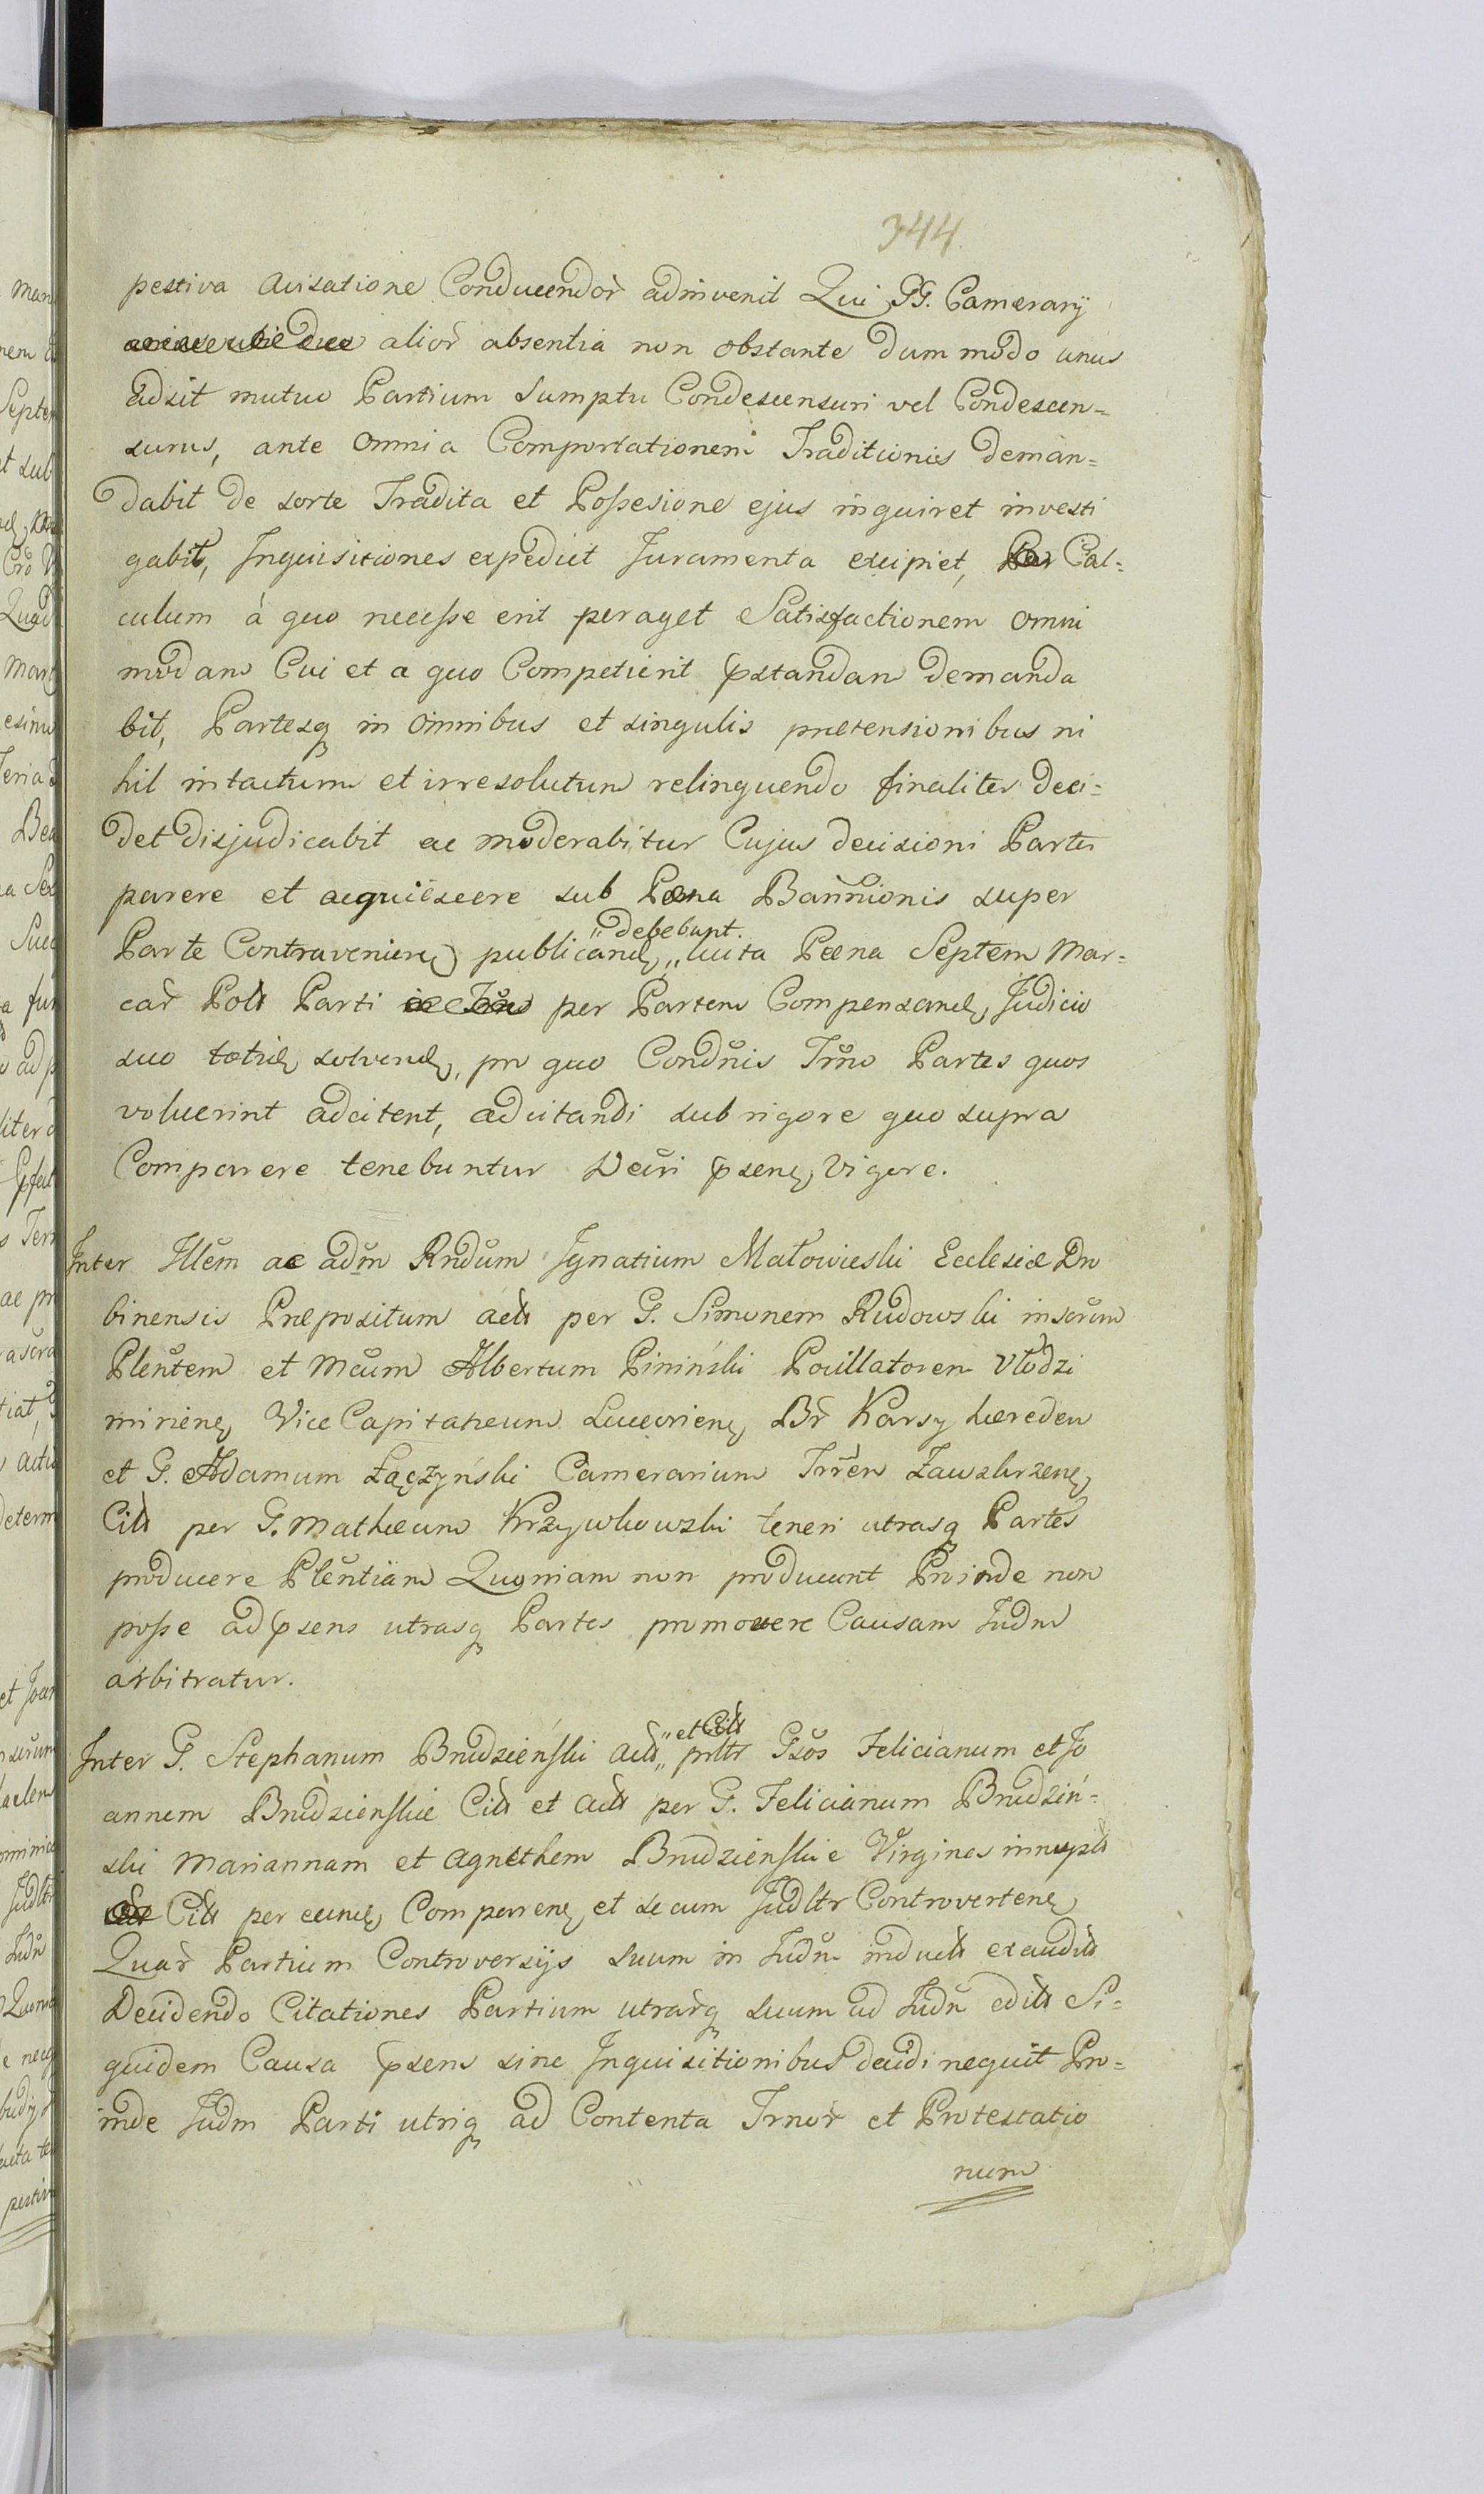 344.
pestiva avisatione Conducendoř adinvenit Qui GG. Camerarij
alioř absentia non obstante dum modo unus
adsit mutuo Partium Sumptu Condescensuri vel Condescen=
surus, ante omnia Comportationem Traditionis deman=
dabit de sorte Tradita et Possesione ejus inquiret investi
gabit, Inquisitiones expediet Juramenta excipiet, Cal=
culum à quo necesse erit peraget Satisfactionem omni
modam Cui et a quo Competierit pstandam demanda
bit, Partesq in omnibus et singulis prætensionibus ni
hil intactum et irresolutum relinquendo finaliter deci=
det disjudicabit ac moderabitur Cujus decisioni Partes
parere et acquiescere sub Pœna Bannionis super
Parte Contravenien publicand „debebunt.„ luita Pœna Septem Mar=
cař Polł Parti per Partem Compensand, Judicio
suo toties solvend, pro quo Condnis Trno Partes quos
voluerint adcitent, adcitandi sub rigore quo supra
Comparere tenebuntur Decri psen vigore.
Inter Illem ac adm Rndum Ignatium Małowieski Ecclesiæ Dro
binensis Præpositum actł per G. Simonem Rudowski inscrum
Plentem et Mcum Albertum Pininski Pocillatorem Vlodzi
mirien Vice Capitaneum Luceorien Br Karsy hæredem
et G. Adamum Łączyński Camerarium Trren Zawskrzen
Citł per G. Mathæum Krzywkowski teneri utrasq Partes
producere Plentiam Quoniam non producunt Proinde non
posse ad psens utrasq Partes promovere Causam Judm
arbitratur.
Inter G. Stephanum Brudzienski actł „et Citł„ prltr Gsos Felicianum et Jo
annem Brudzienskie Citł et actł per G. Felicianum Brudzin=
ski Mariannam et Agnethem Brudzienskie Virgines innuptł
Citł per eund Comparen et secum Judltr Controverten
Quař Partium Controversijs suum in Judm inductł exauditł
Decidendo Citationes Partium utrařq suum ad Judm editł Si=
quidem Causa psens sine Inquisitionibus decidi nequit Pro=
inde Judm Parti utriq ad Contenta Trnoř et Protestatio
num